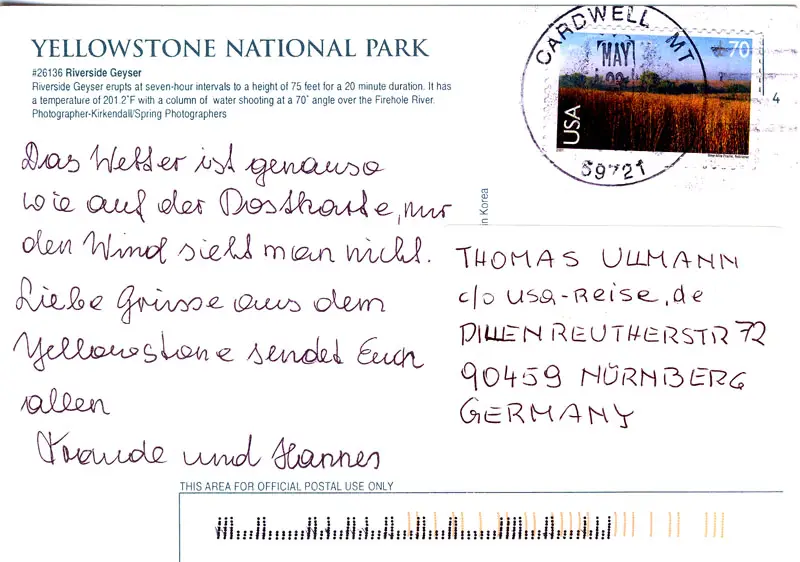 YELLOWSTONE NATIONAL PARK
#26136 Riverside Geyser
Riverside Geyser erupts at seven-hour intervals to a height of 75 feet for a 20 minute duration. It has
a temperature of 201.2°F with a column of water shooting at a 70° angle over the Firehole River.
Photographer-Kirkendall/Spring Photographers
CARDWELL MT
MAY
59721
70
USA
4
in Korea
Das Wetter ist genauso
wie auf der Postkarte, nur
den Wind sieht man nicht.
Liebe Grüsse aus dem
Yellowstone sendet Euch
allen
und Hannes
THOMAS ULLMANN
c/o usa-Reise.de
DILLENREUTHERSTR 72
90459 NÜRNBERG
GERMANY
THIS AREA FOR OFFICIAL POSTAL USE ONLY